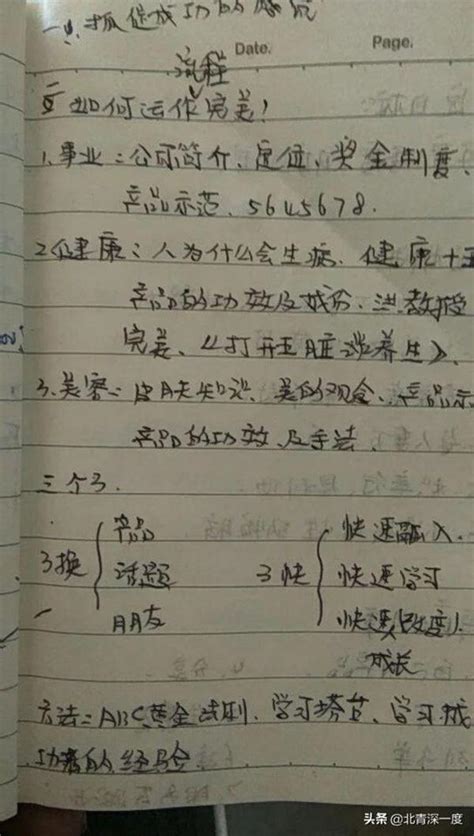 一、抓住成功的
Date.
Page.
流程
如何运作完美!
1.事业:公司简介、定位、奖金制度、
产品示范、5645678.
2健康:人为什么会生病、健康十五
产品的功效及成份、洪教授
完美、《打开五脏谈养生》
3.美容:皮肤知识、美的观念、产品示
产品的功效及手法、
三个3.
3换 产品 3快 快速融入.
话题 快速学习
朋友 快速改变
成长
方法:ABC黄金法则、学习塔位、学习成
功者的经验
头条@北青深一度